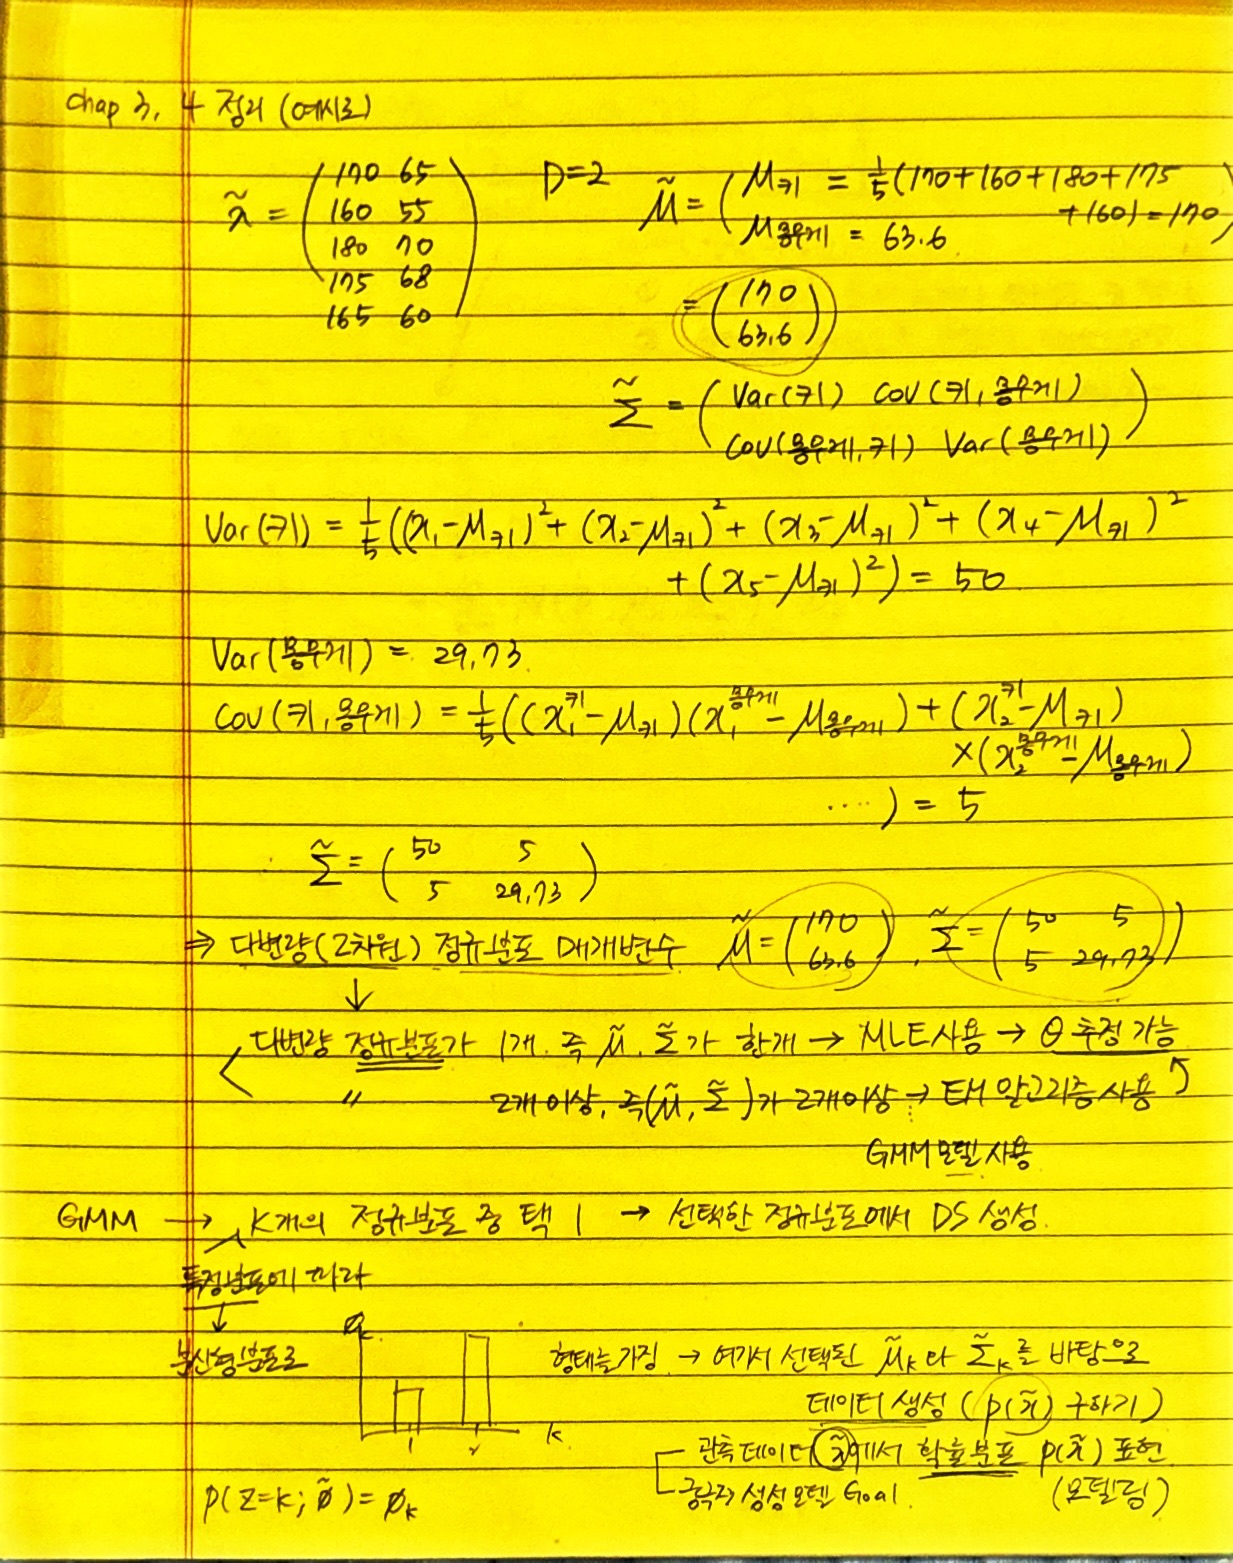 Chap 3, 4 정리 (예시로)
x̃ = (170 65
160 55
180 70
175 68
165 60)
D=2
μ̃ = (μ키 = 1/5(170+160+180+175
+160) = 170
μ몸무게 = 63.6)
= (170
63.6)
Σ̃ = (Var(키) Cov(키, 몸무게)
Cov(몸무게, 키) Var(몸무게))
Var(키) = 1/5((x₁-μ키)² + (x₂-μ키)² + (x₃-μ키)² + (x₄-μ키)²
+ (x₅-μ키)²) = 50
Var(몸무게) = 29.73
Cov(키, 몸무게) = 1/5((x₁키-μ키)(x₁몸무게-μ몸무게) + (x₂키-μ키)
×(x₂몸무게-μ몸무게)
....) = 5
Σ̃ = (50 5
5 29.73)
⇒ 다변량(2차원) 정규분포 매개변수 μ̃ = (170
63.6), Σ̃ = (50 5
5 29.73)
↓
다변량 정규분포가 1개, 즉 μ̃, Σ̃가 한개 → MLE사용 → θ 추정 가능
〃 2개 이상, 즉(μ̃, Σ̃)가 2개이상 → EM 알고리즘 사용
GMM 모델 사용
GMM → K개의 정규분포 중 택 1 → 선택한 정규분포에서 DS 생성.
특정분포에 따라
↓
이산형분포로
Øk
1 2 k
형태를 가짐 → 여기서 선택된 μ̃k와 Σ̃k를 바탕으로
데이터 생성 (p(x̃) 구하기)
관측 데이터 x̃에서 확률분포 p(x̃) 표현
궁극적 생성모델 Goal. (모델링)
p(z=k; ø̃) = øk